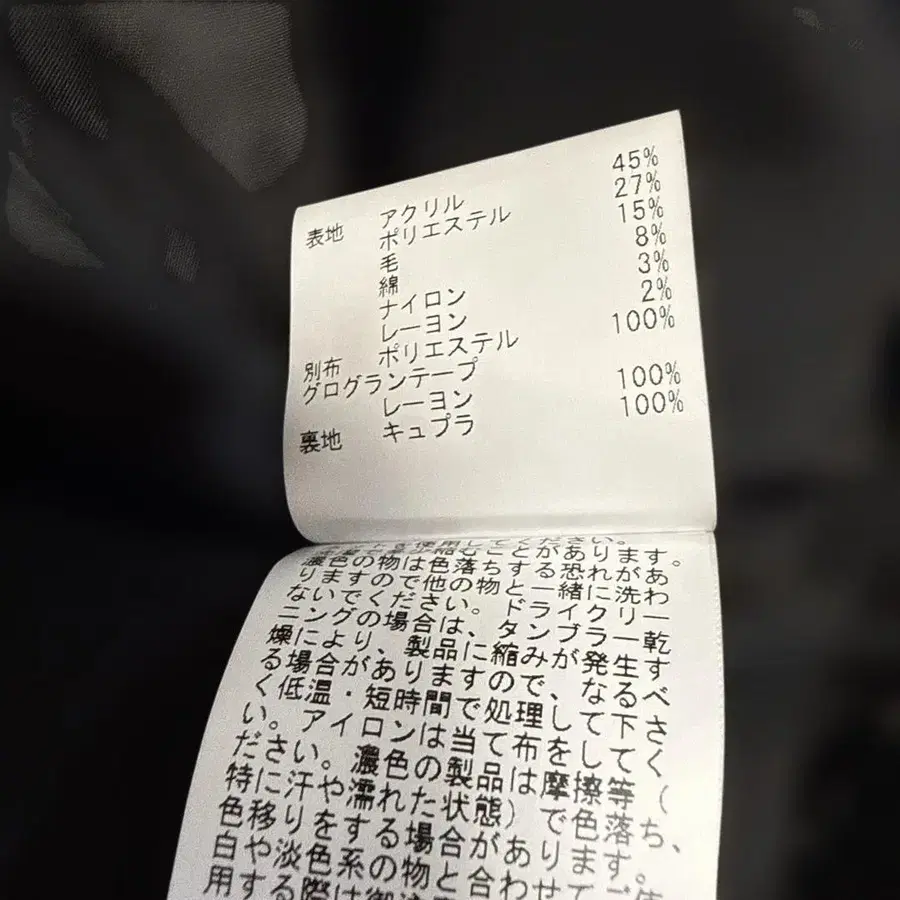 表地 アクリル 45%
ポリエステル 27%
毛 15%
綿 8%
ナイロン 3%
レーヨン 2%
別布 ポリエステル 100%
グログランテープ
レーヨン 100%
裏地 キュプラ 100%
を使用してください。
縮むことがあります。
濃色の物は色落ちする恐れがあ
りますので他の物と一緒に洗わ
ないでください。ドライクリー
ニングの場合は、タンブラー乾
燥により、製品に縮みが発生す
る場合がありますので、なるべ
く低温・短時間で処理して下さ
い。アイロンは当て布をしてく
ださい。濃色の製品は摩擦等(
特に汗や濡れた状態)で色落ち、
色移りをする場合があります。
白や淡色系の物と合わせて
用する際は御